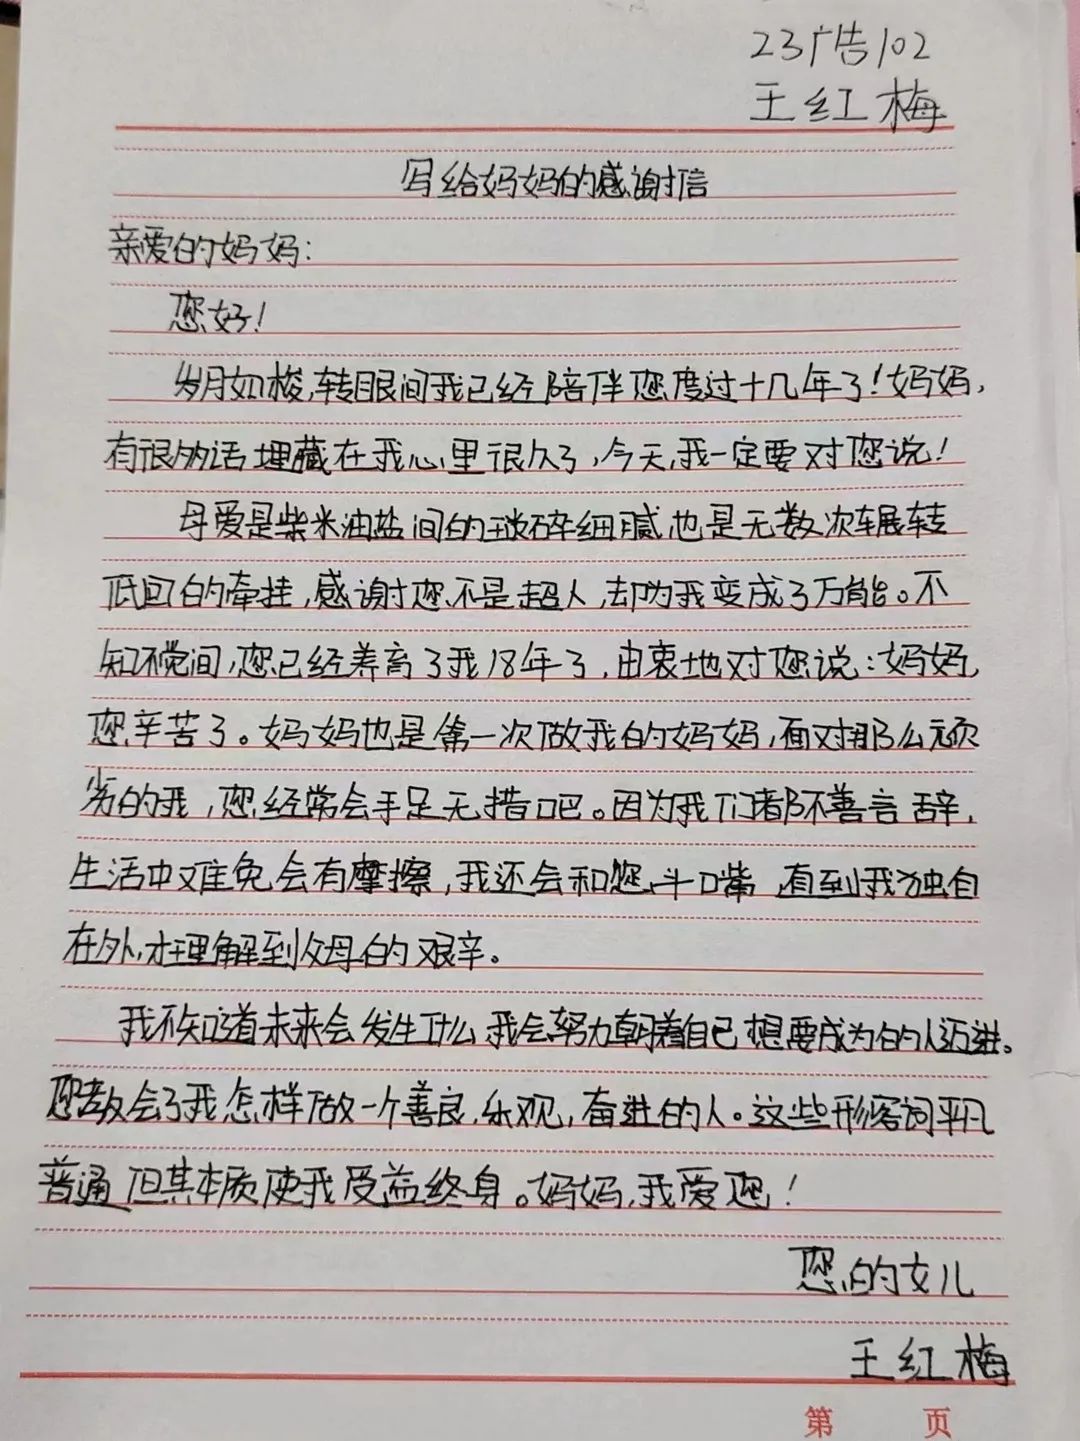 23广告102
王红梅
写给妈妈的感谢信
亲爱的妈妈:
您好!
岁月如梭,转眼间我已经陪伴您度过十几年了!妈妈,
有很多话埋藏在我心里很久了,今天,我一定要对您说!
母爱是柴米油盐间的琐碎细腻也是无数次辗转
低回的牵挂,感谢您不是超人,却为我变成了万能。不
知不觉间,您已经养育了我18年了,由衷地对您说:妈妈,
您辛苦了。妈妈也是第一次做我的妈妈,面对那么顽
劣的我,您经常会手足无措吧。因为我们都不善言辞,
生活中难免会有摩擦,我还会和您斗嘴,直到我独自
在外,才理解到父母的艰辛。
我不知道未来会发生什么,我会努力朝着自己想要成为的人迈进。
您教会了我怎样做一个善良,乐观,奋进的人。这些形容词平凡
普通,但其本质使我受益终身。妈妈,我爱您!
您的女儿
王红梅
第 页